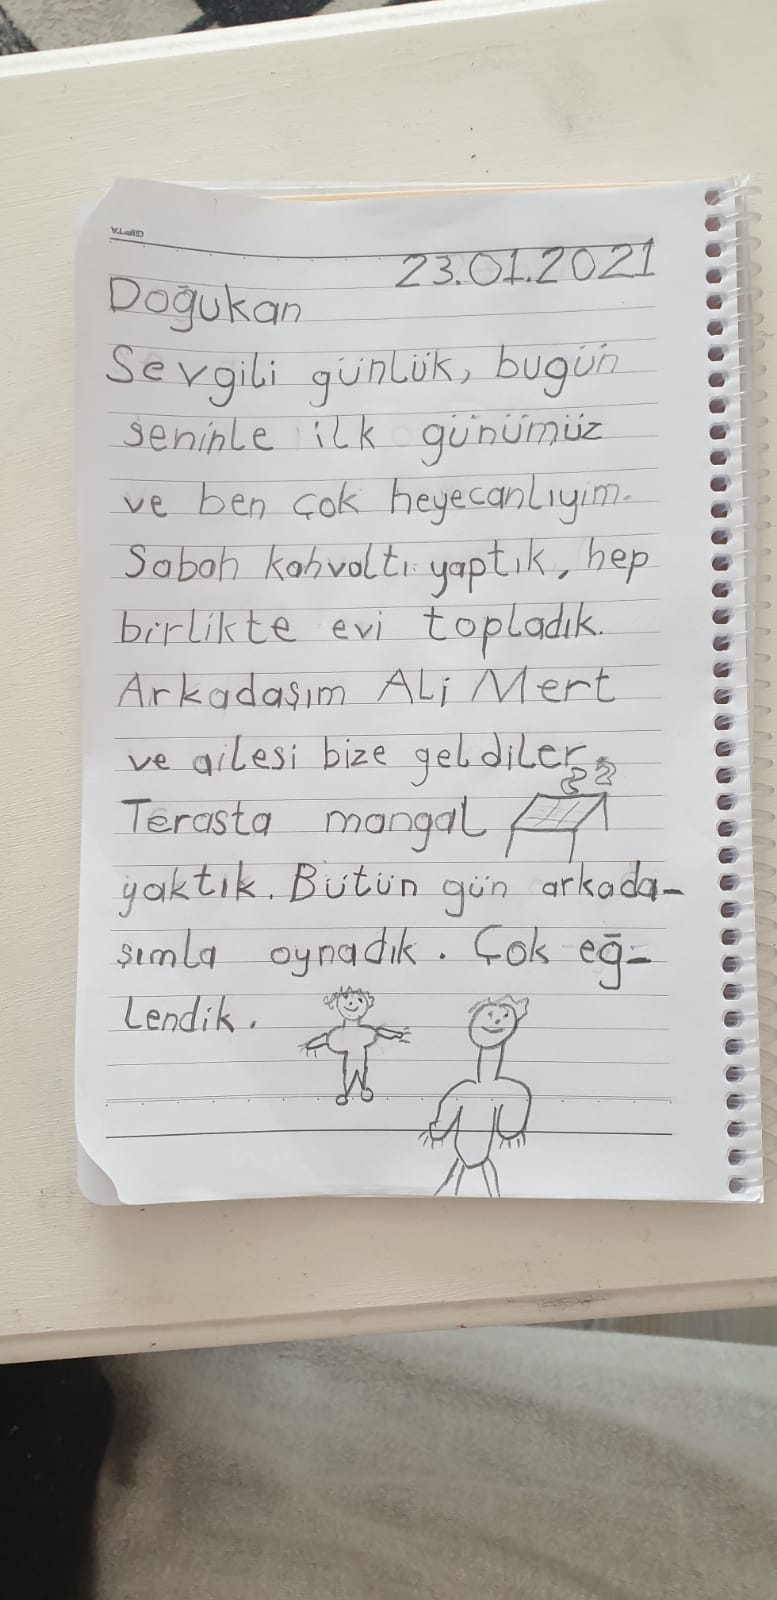 GIPTA
23.01.2021
Doğukan
Sevgili günlük, bugün
seninle ilk günümüz
ve ben çok heyecanlıyım.
Sabah kahvaltı yaptık, hep
birlikte evi topladık.
Arkadaşım Ali Mert
ve ailesi bize geldiler.
Terasta mangal
yaktık. Bütün gün arkada-
şımla oynadık. Çok eğ-
lendik.